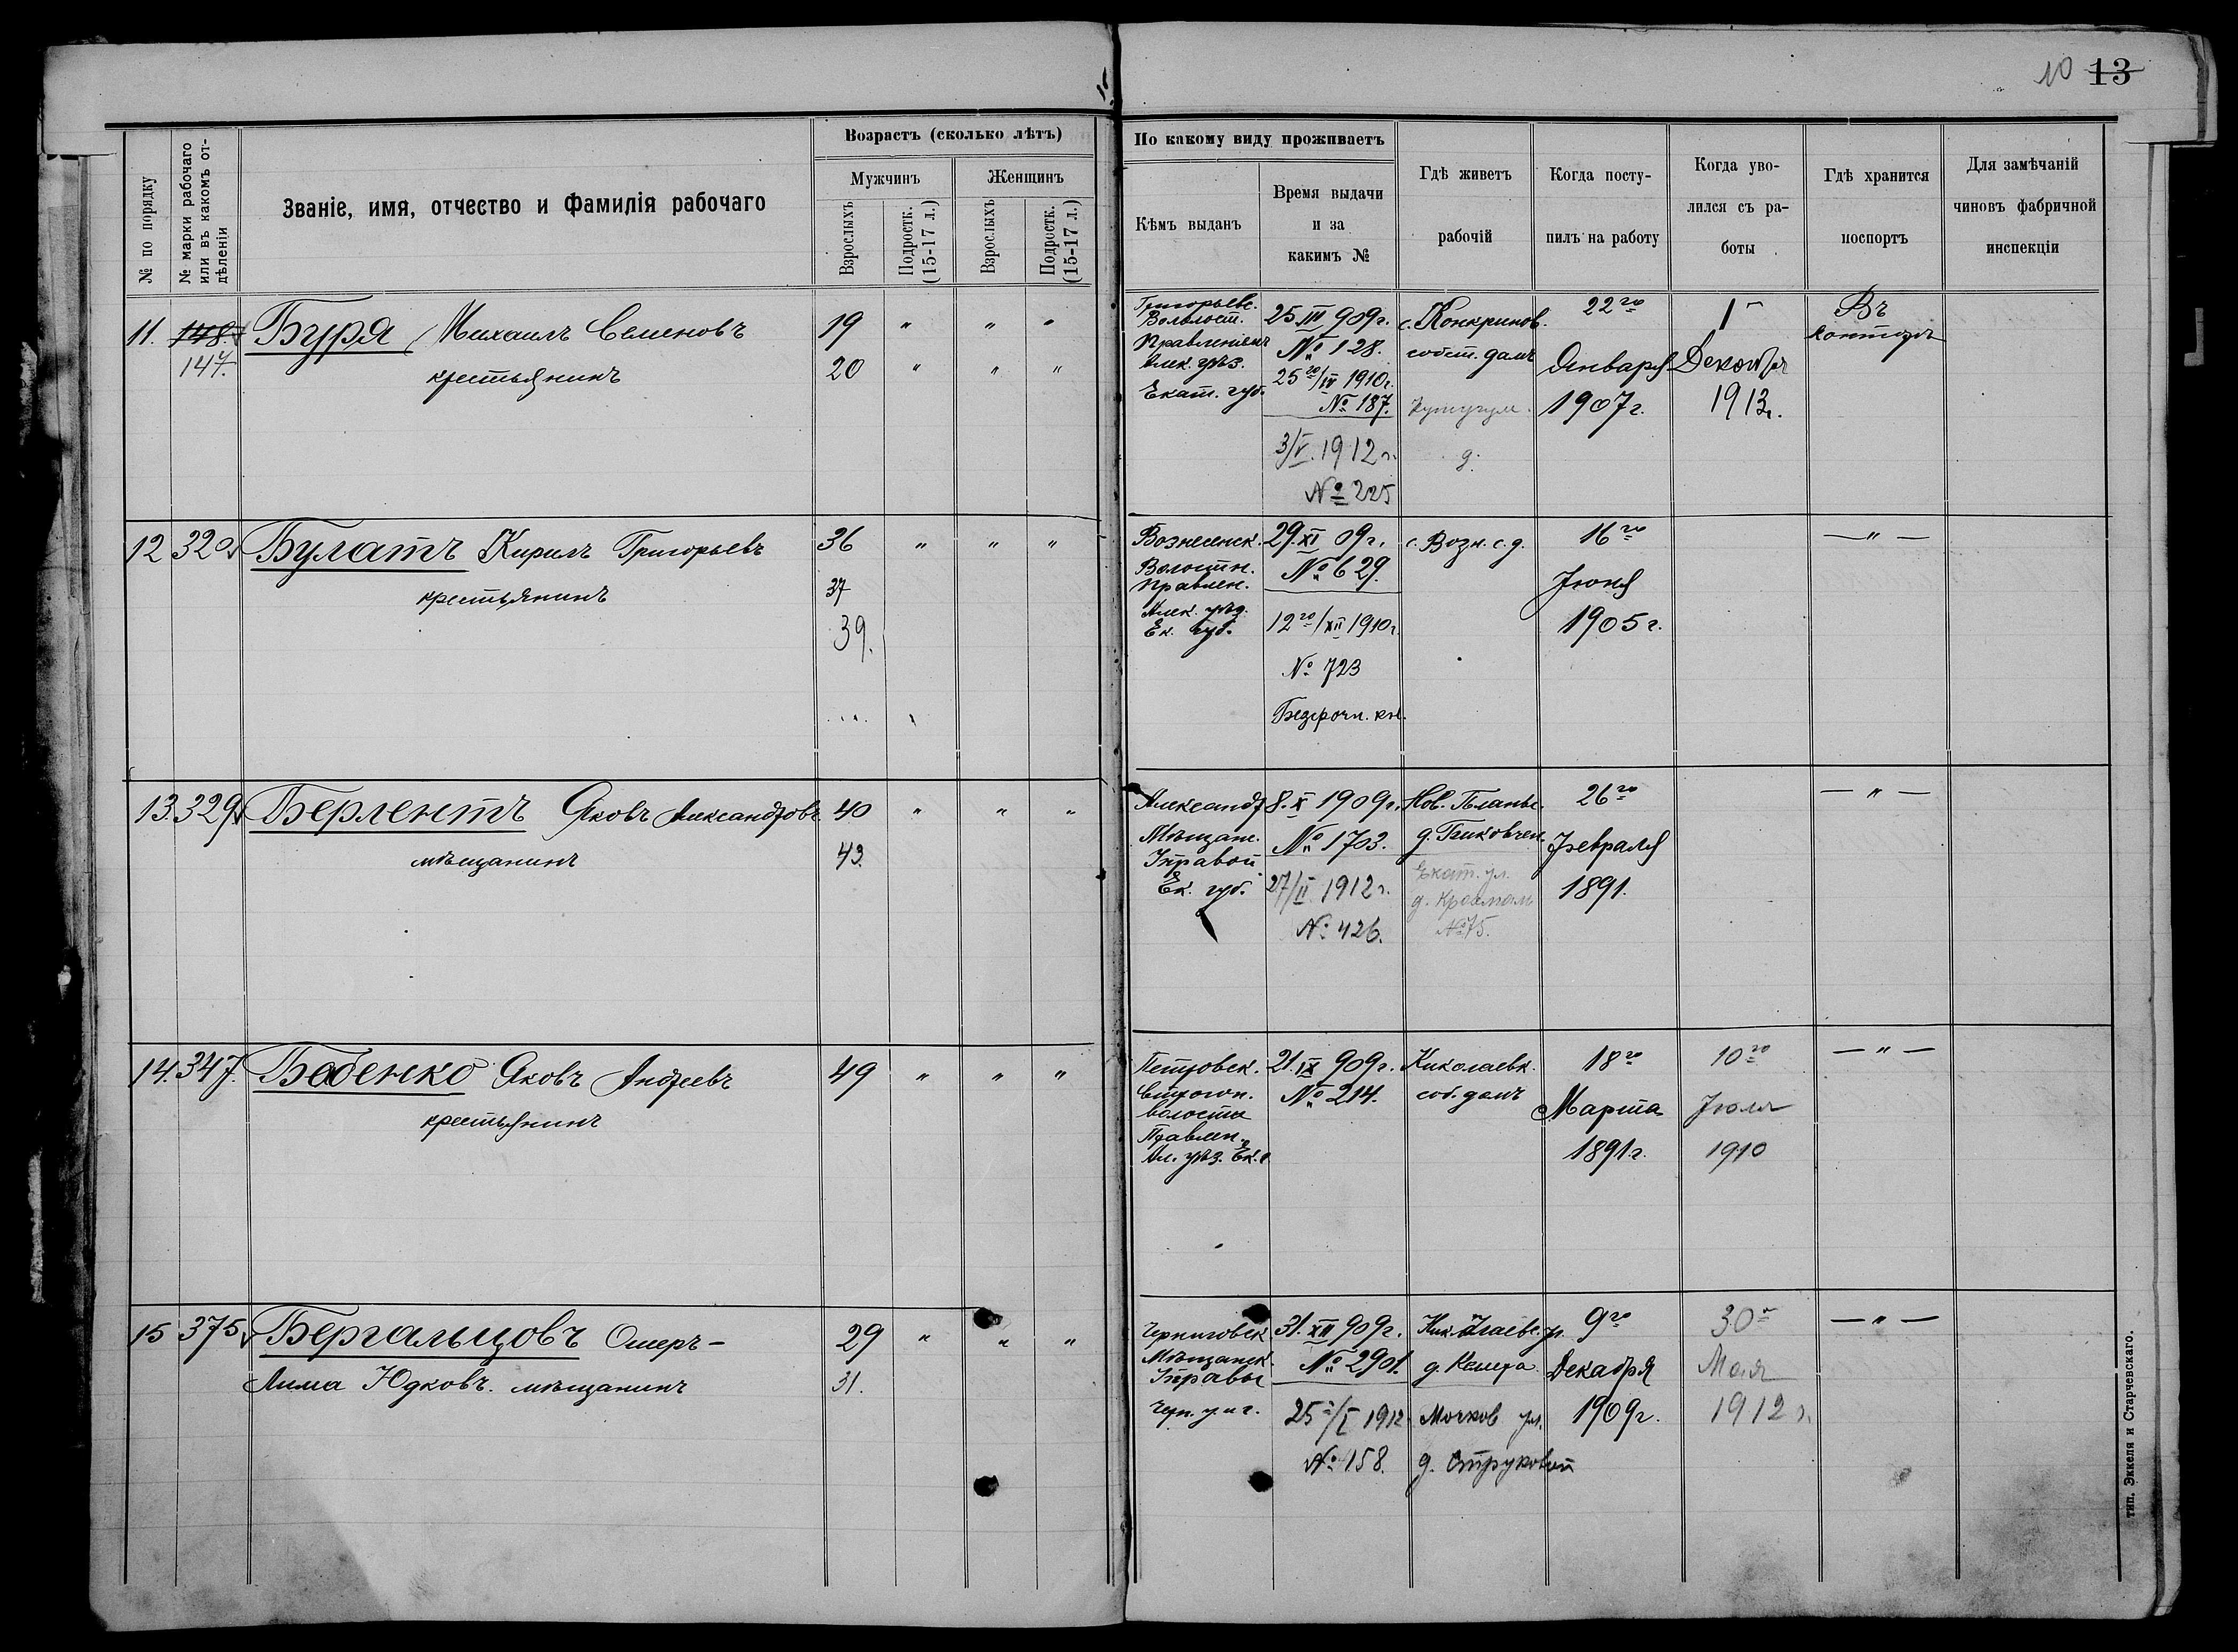 10 13
Возрастъ (сколько лѣтъ)
Мужчинъ Женщинъ
№ по порядку
№ марки рабочаго или въ какомъ отдѣленіи
Званіе, имя, отчество и фамилія рабочаго
Взрослыхъ
Подростк. (15-17 л.)
Взрослыхъ
Подростк. (15-17 л.)
По какому виду проживаетъ
Кѣмъ выданъ
Время выдачи
и за
какимъ №
Гдѣ живетъ
рабочій
Когда посту-
пилъ на работу
Когда уво-
лился съ ра-
боты
Гдѣ хранится
поспортъ
Для замѣчаній
чиновъ фабричной
инспекціи
11. 148. Буря Михаилъ Семеновъ 19 " " "
147. крестьянинъ 20 " " "
Григорьевс.
Правленіемъ
Алек. уѣз.
Екат. губ.
25.III 909г.
№ 128.
25го/IV 1910г.
№ 187.
3/V.1912г.
№ 225
с. Конкринов.
собст. домъ
д.
22го
Января
1907г.
1го
Декабря
1913г.
Въ
конторѣ
12 320 Булатъ Кирилъ Григорьевъ 36 " " "
крестьянинъ 37
39.
Вознесенск.
Волостн.
правлен.
Алек. уѣд.
Ек. губ.
29.XI 09г.
№ 629.
12го/XII 1910г.
№ 723
Безсрочн. кн.
с. Возн. с. д.
16го
Іюня
1905г.
— " —
13. 329 Берлентъ Яковъ Александровъ 40 " " "
мѣщанинъ 43.
Александр.
Мѣщанс.
Управой
Ек. губ.
8.X 1909г.
№ 1703.
27/II 1912г.
№ 426.
Нов.
Екат. ул.
№ 75.
26го
Февраля
1891.
— " —
14. 347. Бабенко Яковъ Андреевъ 49 " " "
крестьянинъ
Петровск.
волости
Правлен.
Ал. уѣз. Ек. г
21.IX 909г.
№ 214.
Николаевк.
соб. домъ
18го
Марта
1891.г.
10го
Іюля
1910
— " —
15 375 Бергальцовъ Ошеръ- 29 " " "
Лима Юдковъ. мѣщанинъ 31.
Черниговск
Мѣщанск.
Управы
Черн. у и г.
31.XII 909г.
№ 2901.
25го/I 1912
№ 158.
Николаевс. ул.
д.
Мочков ул.
д. Струковой
9го
Декабря
1909г.
30го
Мая
1912г.
— " —
тип. Эккеля и Старчевскаго.